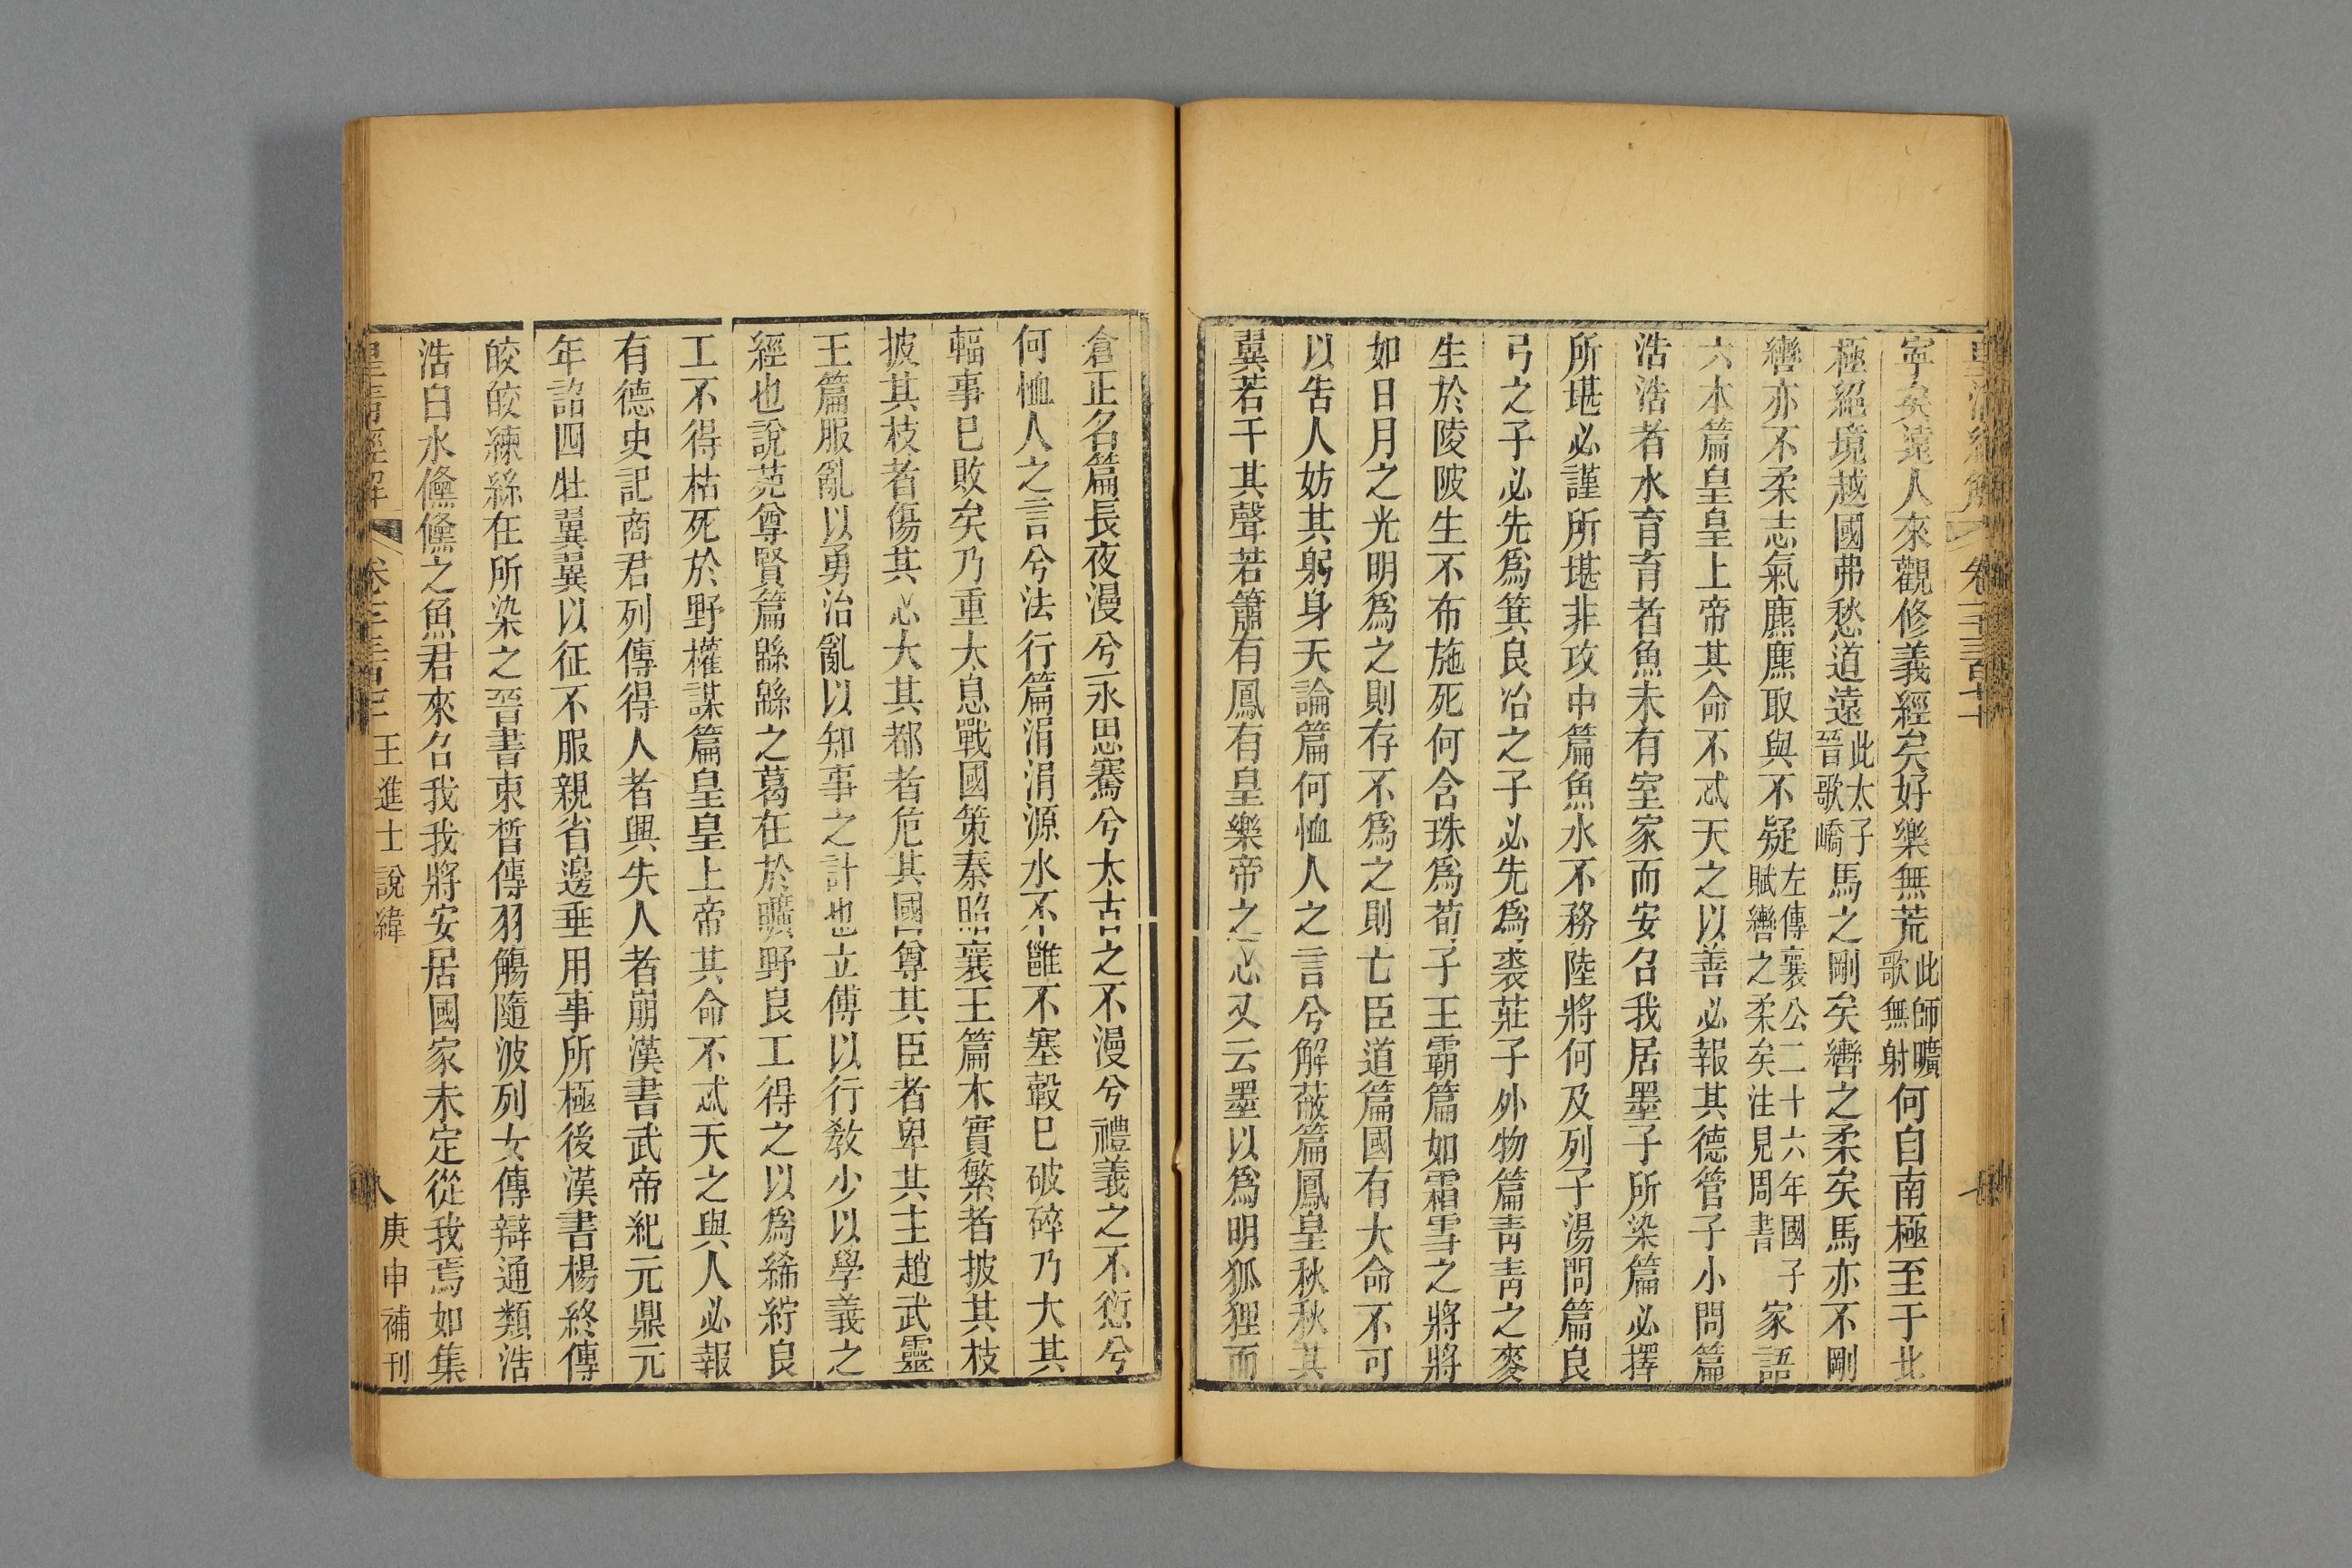 寧矣遠人來觀修義經矣好樂無荒此師曠歌無射何自南極至于北
極絕境越國弗愁道遠此太子晉歌嶠馬之剛矣轡之柔矣馬亦不剛
轡亦不柔志氣麃麃取與不疑左傳襄公二十六年國子賦轡之柔矣注見周書家語
六本篇皇皇上帝其命不忒天之以善必報其德管子小問篇
浩浩者水育育者魚未有室家而安召我居墨子所染篇必擇
所堪必謹所堪非攻中篇魚水不務陸將何及列子湯問篇良
弓之子必先爲箕良冶之子必先爲裘莊子外物篇靑靑之麥
生於陵陂生不布施死何含珠爲荀子王霸篇如霜雪之將將
如日月之光明爲之則存不爲之則亡臣道篇國有大命不可
以告人妨其躬身天論篇何恤人之言兮解蔽篇鳳皇秋秋其
翼若干其聲若簫有鳳有皇樂帝之心又云墨以爲明狐狸而
倉正名篇長夜漫兮永思騫兮太古之不漫兮禮義之不愆兮
何恤人之言兮法行篇涓涓源水不雝不塞轂已破碎乃大其
輻事已敗矣乃重大息戰國策秦昭襄王篇木實繁者披其枝
披其枝者傷其心大其都者危其國尊其臣者卑其主趙武靈
王篇服亂以勇治亂以知事之計也立傅以行敎少以學義之
經也說苑尊賢篇緜緜之葛在於曠野良工得之以爲絺紵良
工不得枯死於野權謀篇皇皇上帝其命不忒天之與人必報
有德史記商君列傳得人者興失人者崩漢書武帝紀元鼎元
年詔四牡翼翼以征不服親省邊垂用事所極後漢書楊終傳
皎皎練絲在所染之晉書束皙傳羽觴隨波列女傳辯通類浩
浩白水儵儵之魚君來召我我將安居國家未定從我焉如集
皇淸經解 王進士說緯 八 庚申補刊